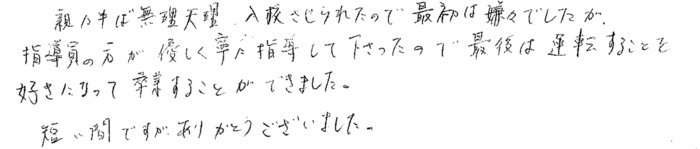 親に半ば無理矢理、入校させられたので最初は嫌々でしたが、
指導員の方が優しく寧に指導して下さったので最後は運転することを
好きになって卒業することができました。
短い間ですがありがとうございました。